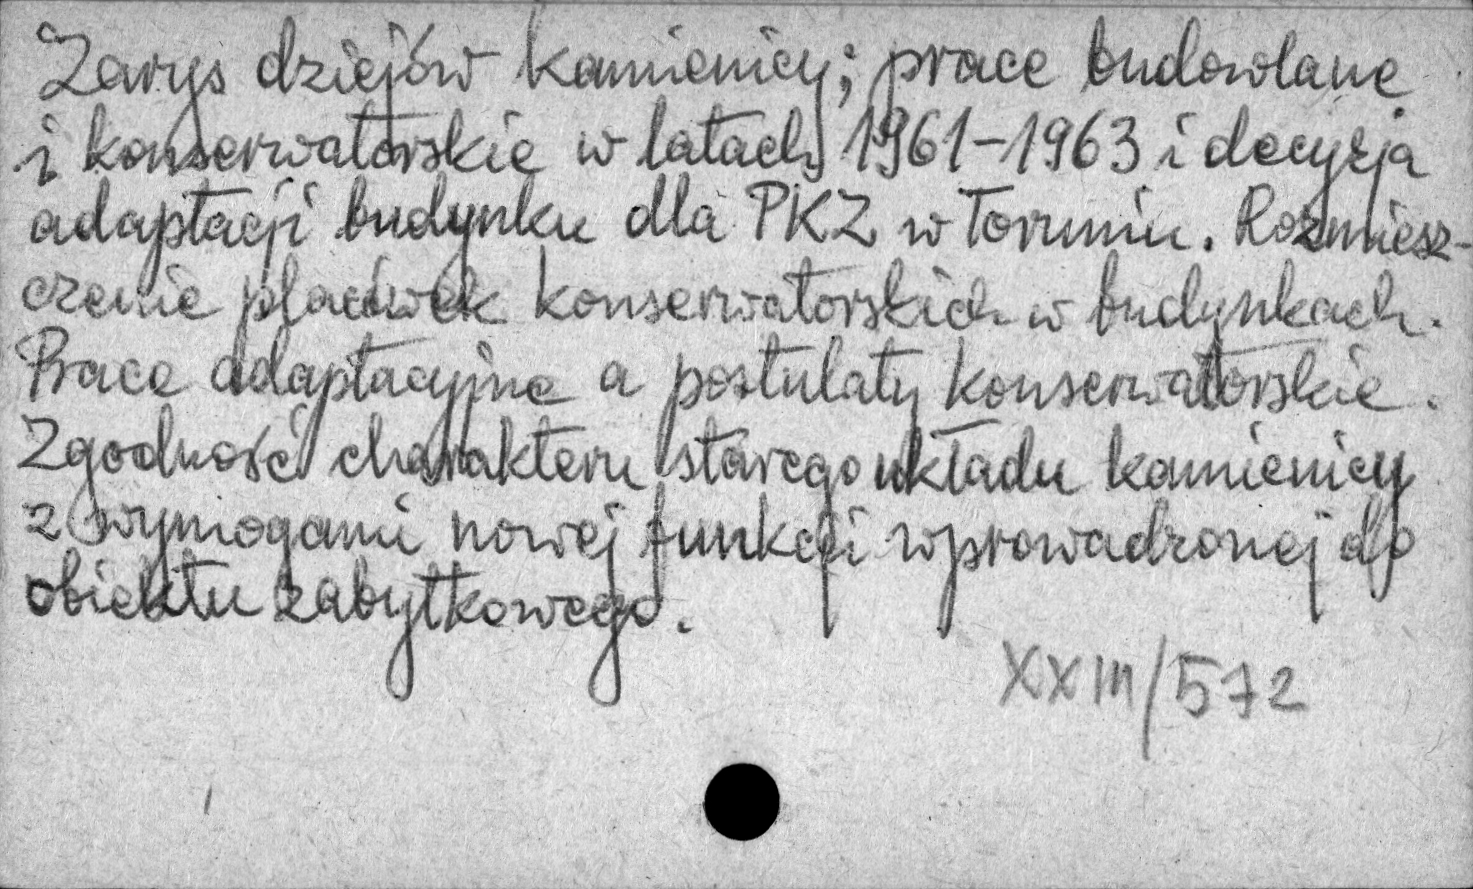 Zarys dziejów kamienicy; prace budowlane
i konserwatorskie w latach 1961-1963 i decyzja
adaptacji budynku dla PKZ w Toruniu. Rozmiesz-
czenie placówek konserwatorskich w budynkach.
Prace adaptacyjne a postulaty konserwatorskie.
Zgodność charakteru starego układu kamienicy
z wymogami nowej funkcji wprowadzonej do
obiektu zabytkowego.
XXIII/572